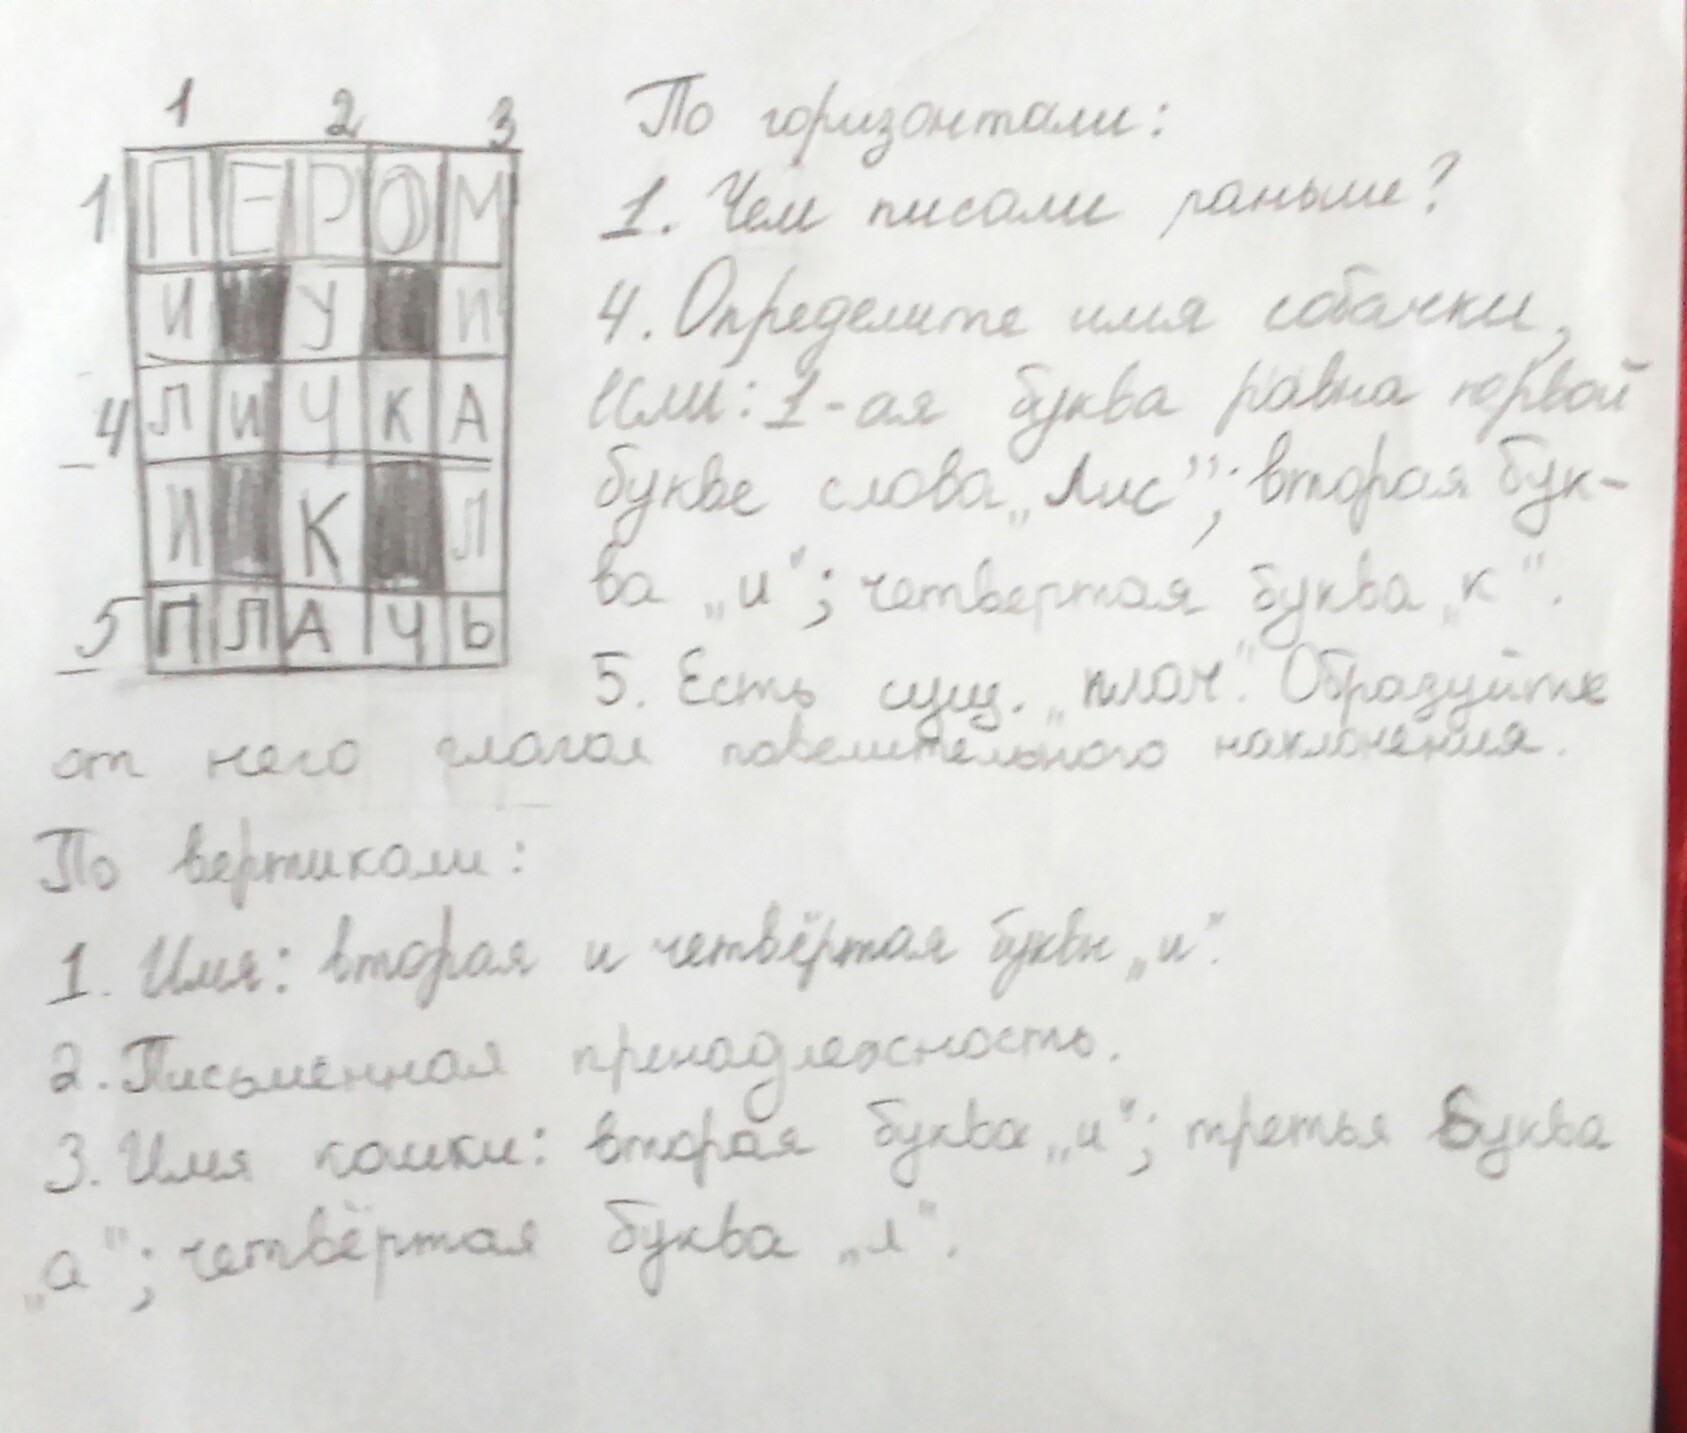 1 2 3
1 ПЕРОМ
И У И
4 ЛИЧКА
И К Л
5 ПЛАЧЬ
По горизонтали:
1. Чем писали раньше?
4. Определите имя собачки,
Или: 1-ая буква равна первой
букве слова „Лис”; вторая бук-
ва „и”; четвертая буква „к”.
5. Есть сущ. „плач”. Образуйте
от него глагол повелительного наклонения.
По вертикали:
1. Имя: вторая и четвёртая буквы „и”.
2. Письменная пренадлежность.
3. Имя кошки: вторая буква „и”; третья буква
„а”; четвёртая буква „л”.